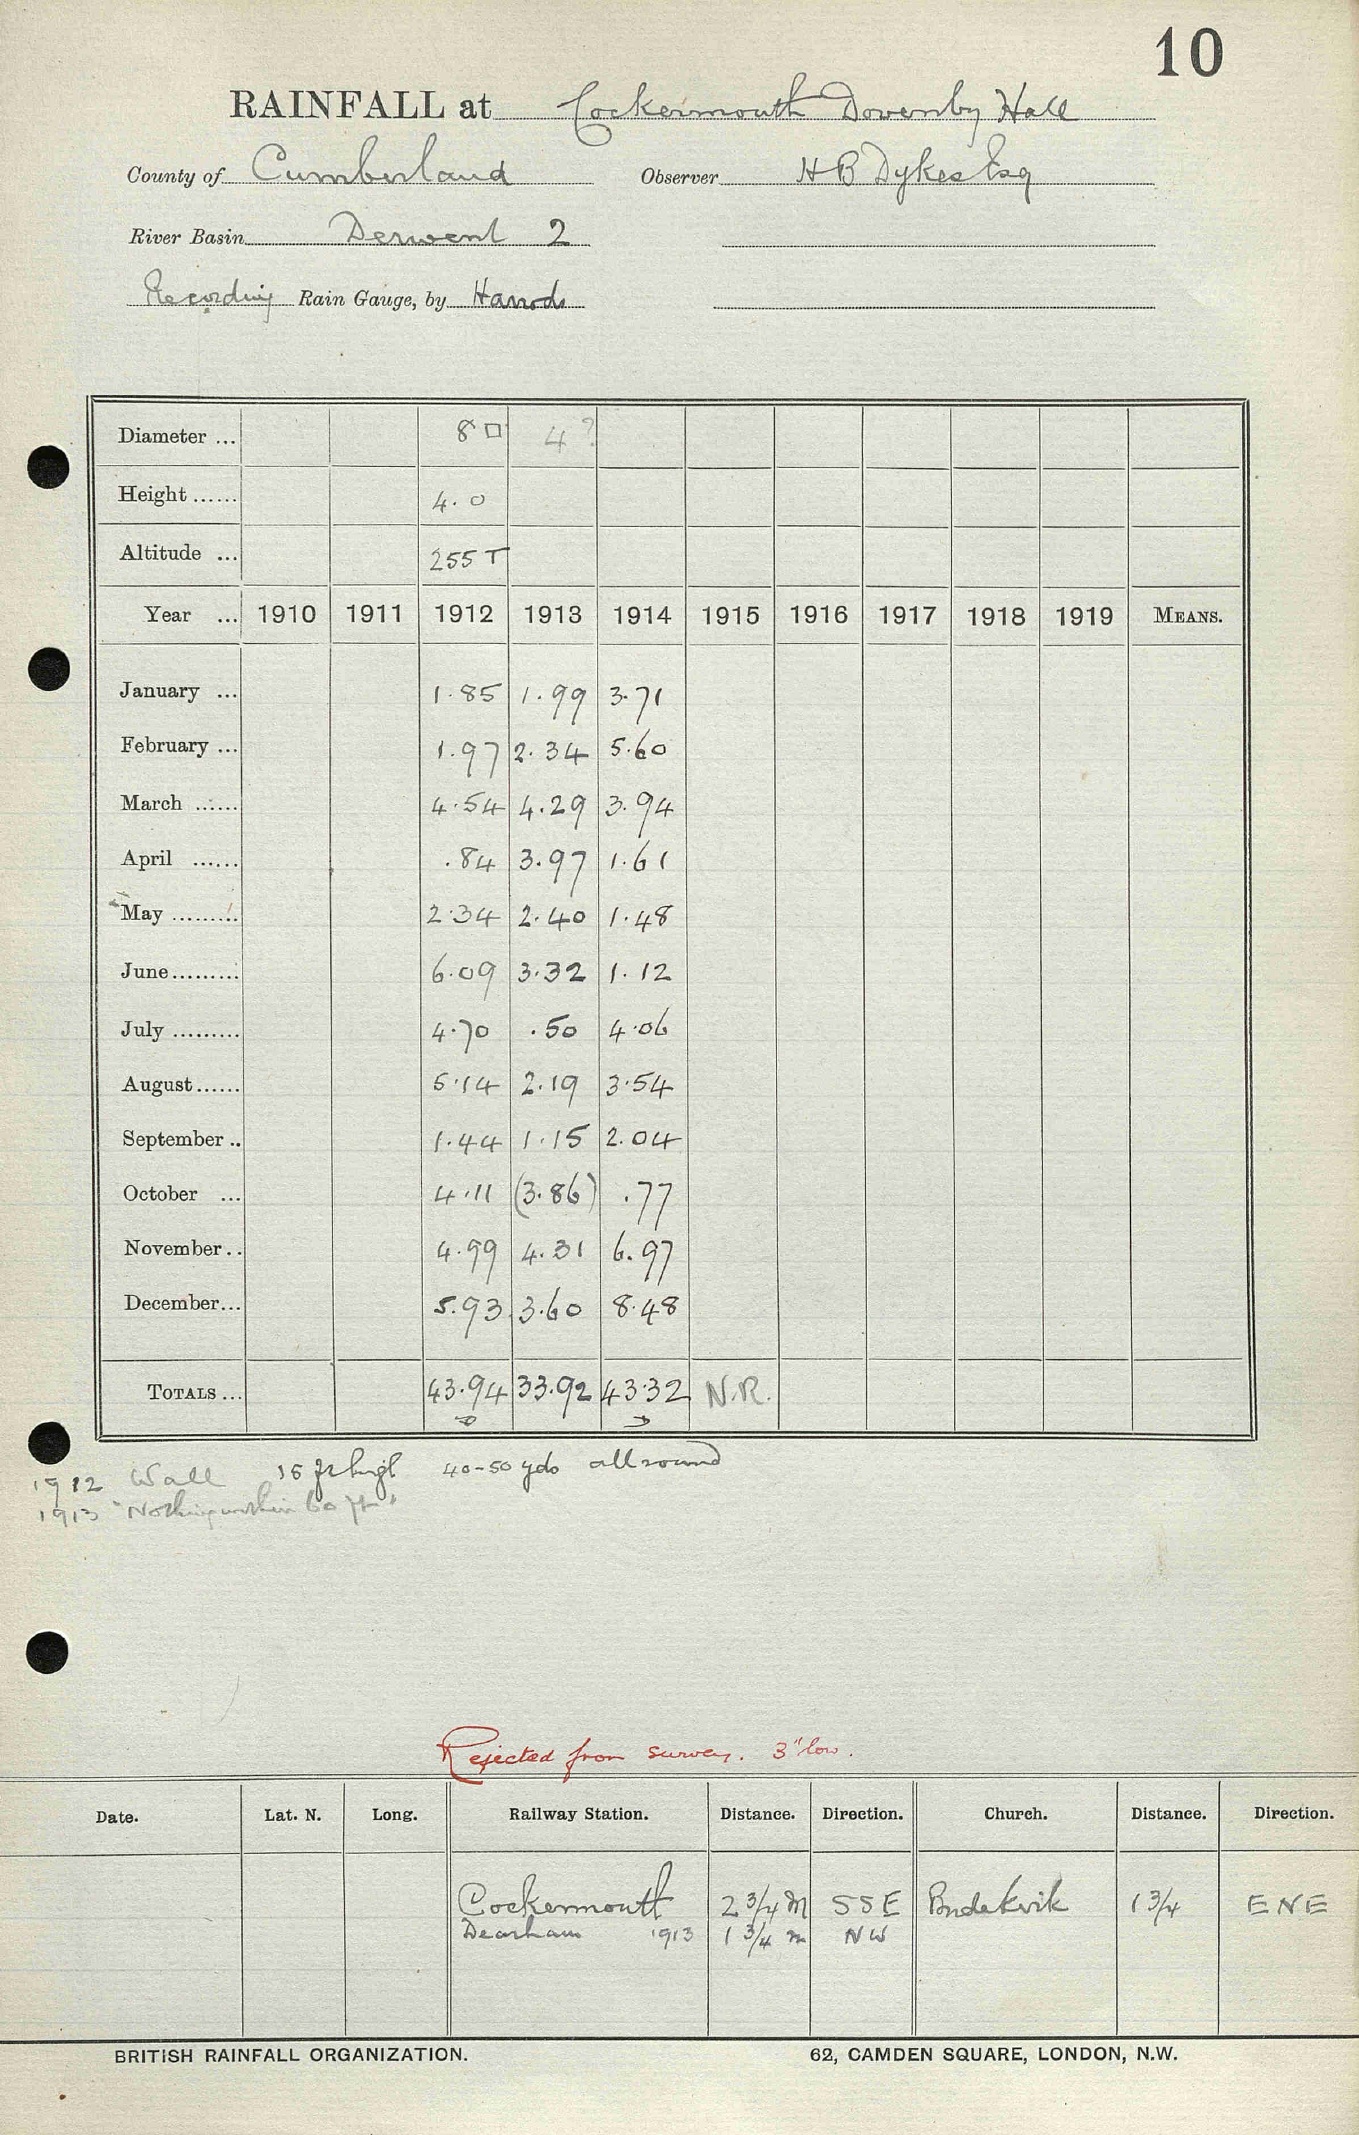 10
RAINFALL at Cockermouth Dovenby Hall
County of Cumberland Observer H B Dykes Esq
River Basin Derwent 2
Recording Rain Gauge, by Harrods
Diameter ... 8 □ 4 ?
Height ...... 4.0
Altitude ... 255 T
Year ... 1910 1911 1912 1913 1914 1915 1916 1917 1918 1919 MEANS.
January ... 1.85 1.99 3.71
February ... 1.97 2.34 5.60
March ...... 4.54 4.29 3.94
April ...... .84 3.97 1.61
May ......... 2.34 2.40 1.48
June ......... 6.09 3.32 1.12
July ......... 4.70 .50 4.06
August ...... 5.14 2.19 3.54
September .. 1.44 1.15 2.04
October ... 4.11 (3.86) .77
November .. 4.99 4.31 6.97
December ... 5.93 3.60 8.48
TOTALS ... 43.94 33.92 43.32 N.R.
1912 Wall 15 ft high 40-50 yds all round
1913 "Nothing within 60 ft"
Rejected from survey. 3" low.
Date. Lat. N. Long. Railway Station. Distance. Direction. Church. Distance. Direction.
Cockermouth 2 3/4 M SSE Bridekirk 1 3/4 ENE
Dearham 1913 1 3/4 m NW
BRITISH RAINFALL ORGANIZATION. 62, CAMDEN SQUARE, LONDON, N.W.